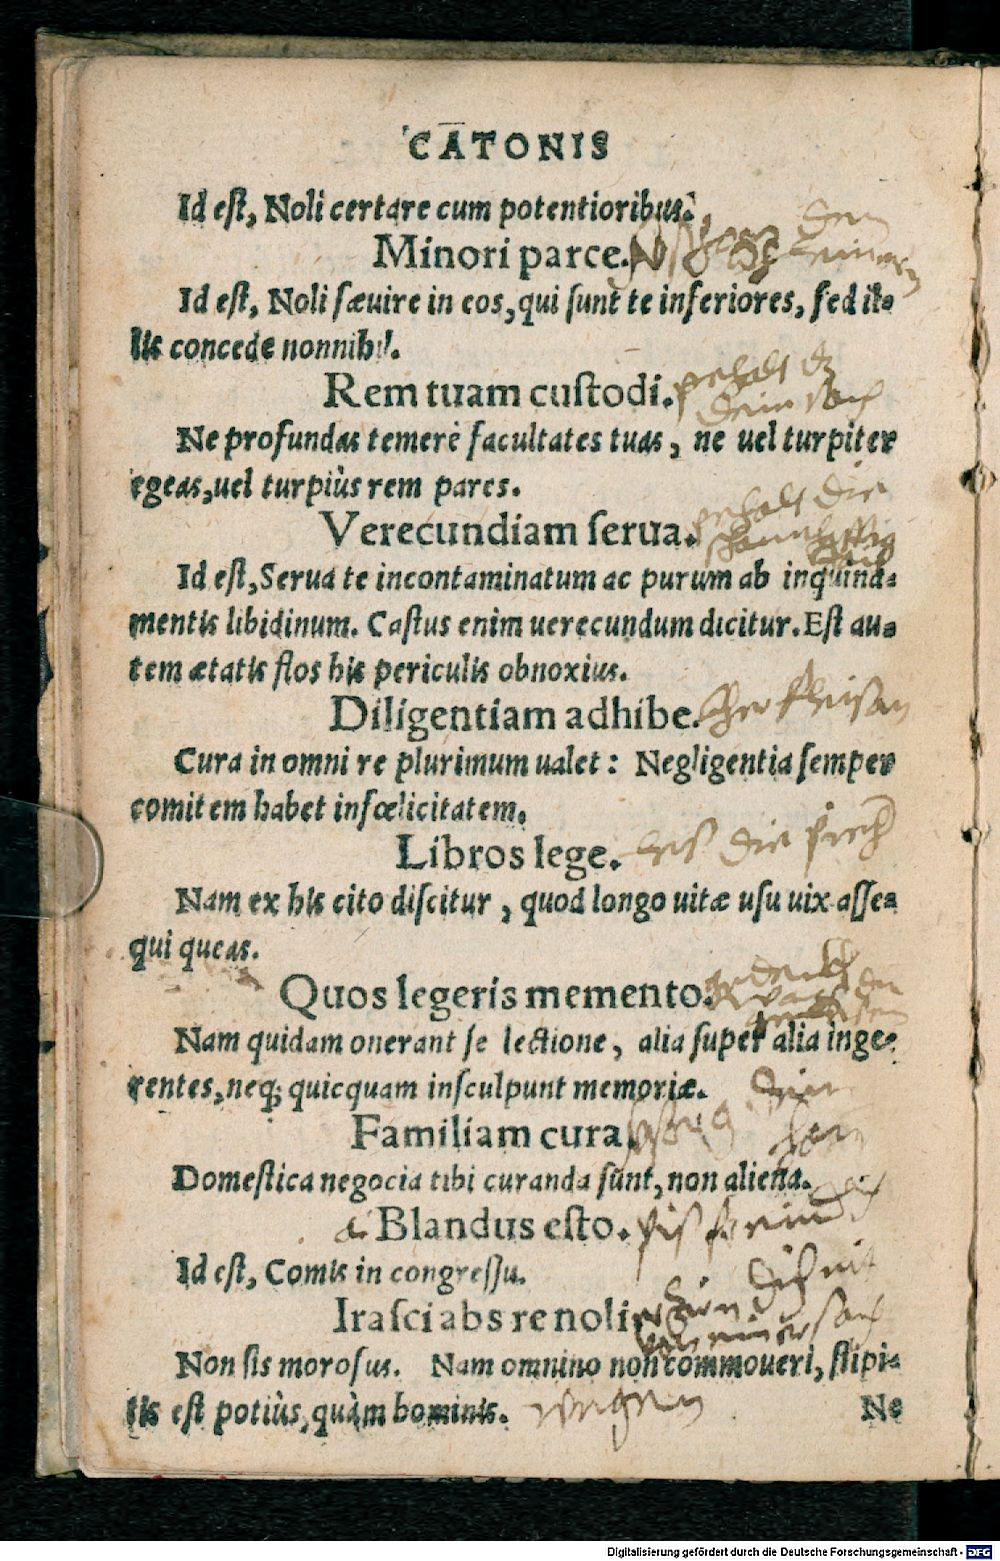 CATONIS
Id est, Noli certare cum potentioribus.
Minori parce.
Id est, Noli sæuire in eos, qui sunt te inferiores, sed il-
lis concede nonnihil.
Rem tuam custodi. behalt dz
dein sach
Ne profundas temerè facultates tuas, ne uel turpiter
egeas, uel turpiùs rem pares.
Verecundiam serua. behalt die
Id est, Serua te incontaminatum ac purum ab inquina-
mentis libidinum. Castus enim uerecundum dicitur. Est au-
tem ætatis flos his periculis obnoxius.
Diligentiam adhibe.
Cura in omni re plurimum ualet: Negligentia semper
comitem habet infœlicitatem.
Libros lege. die
Nam ex his cito discitur, quod longo uitæ usu uix asse-
qui queas.
Quos legeris memento.
Nam quidam onerant se lectione, alia super alia inge-
rentes, neq; quicquam insculpunt memoriæ.
Familiam cura.
Domestica negocia tibi curanda sunt, non aliena.
Blandus esto.
Id est, Comis in congressu.
Irasci abs re noli.
Non sis morosus. Nam omnino non commoueri, stipi-
tis est potiùs, quàm hominis.
Ne
Digitalisierung gefördert durch die Deutsche Forschungsgemeinschaft - DFG